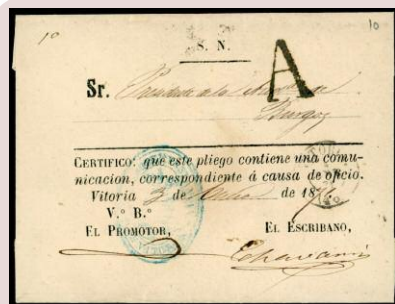 1º 10
S. N. A
Sr. Presidente de la
Burgos
CERTIFICO: que este pliego contiene una comu-
nicacion, correspondiente á causa de oficio.
Vitoria 3 de Enero de 187
V.º B.º
EL PROMOTOR, EL ESCRIBANO,